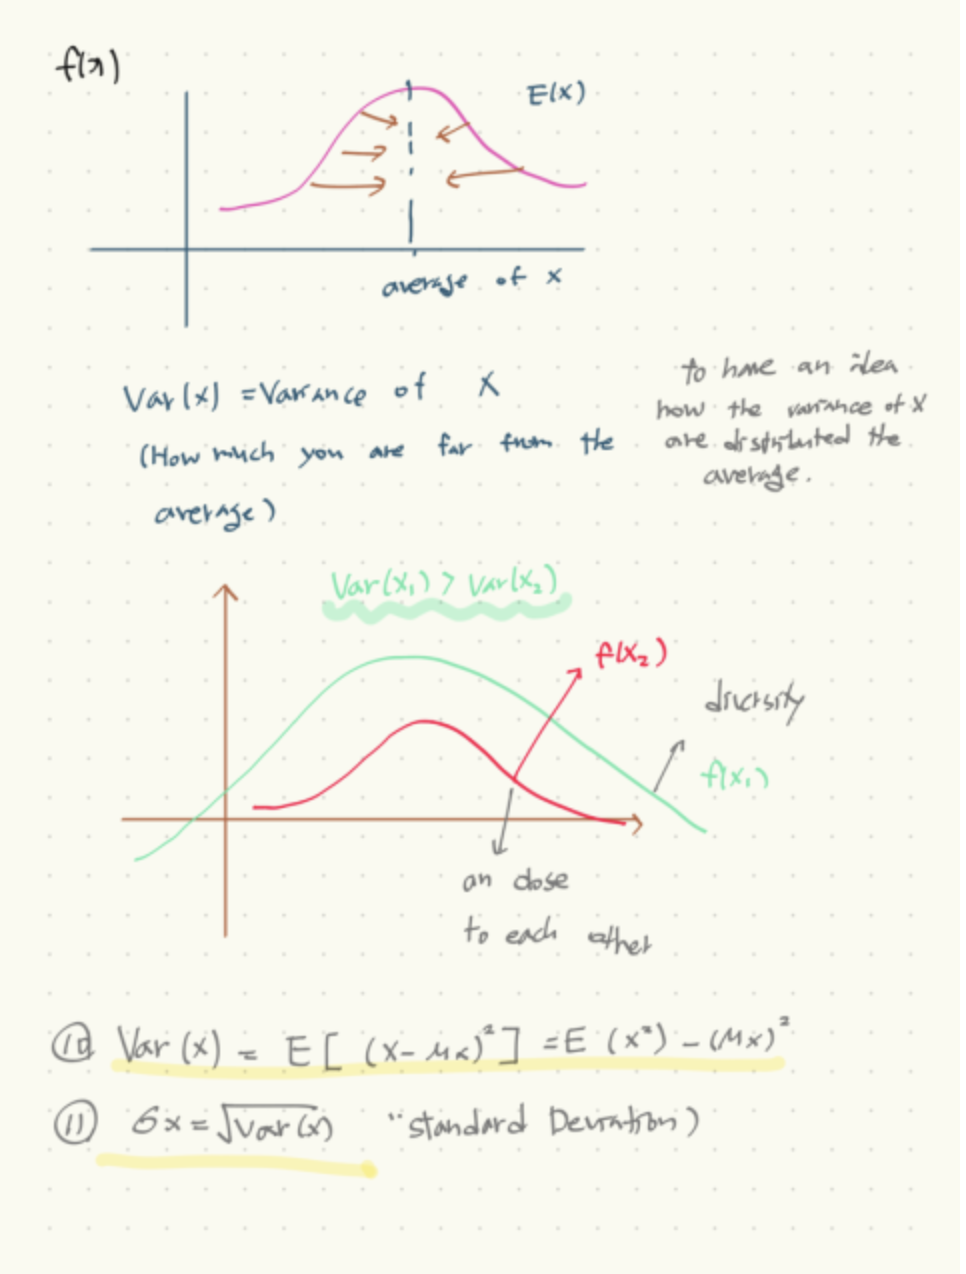 f(x)
E(x)
average of x
Var(x) = Variance of X
(How much you are far from the
average)
to have an idea
how the variance of X
are distributed the
average.
Var(x₁) > Var(x₂)
f(x₂)
diversity
f(x₁)
an close
to each other
⑩ Var(x) = E[(x-μx)²] = E(x²) - (μx)²
⑪ σx = √Var(x) "standard Deviation)